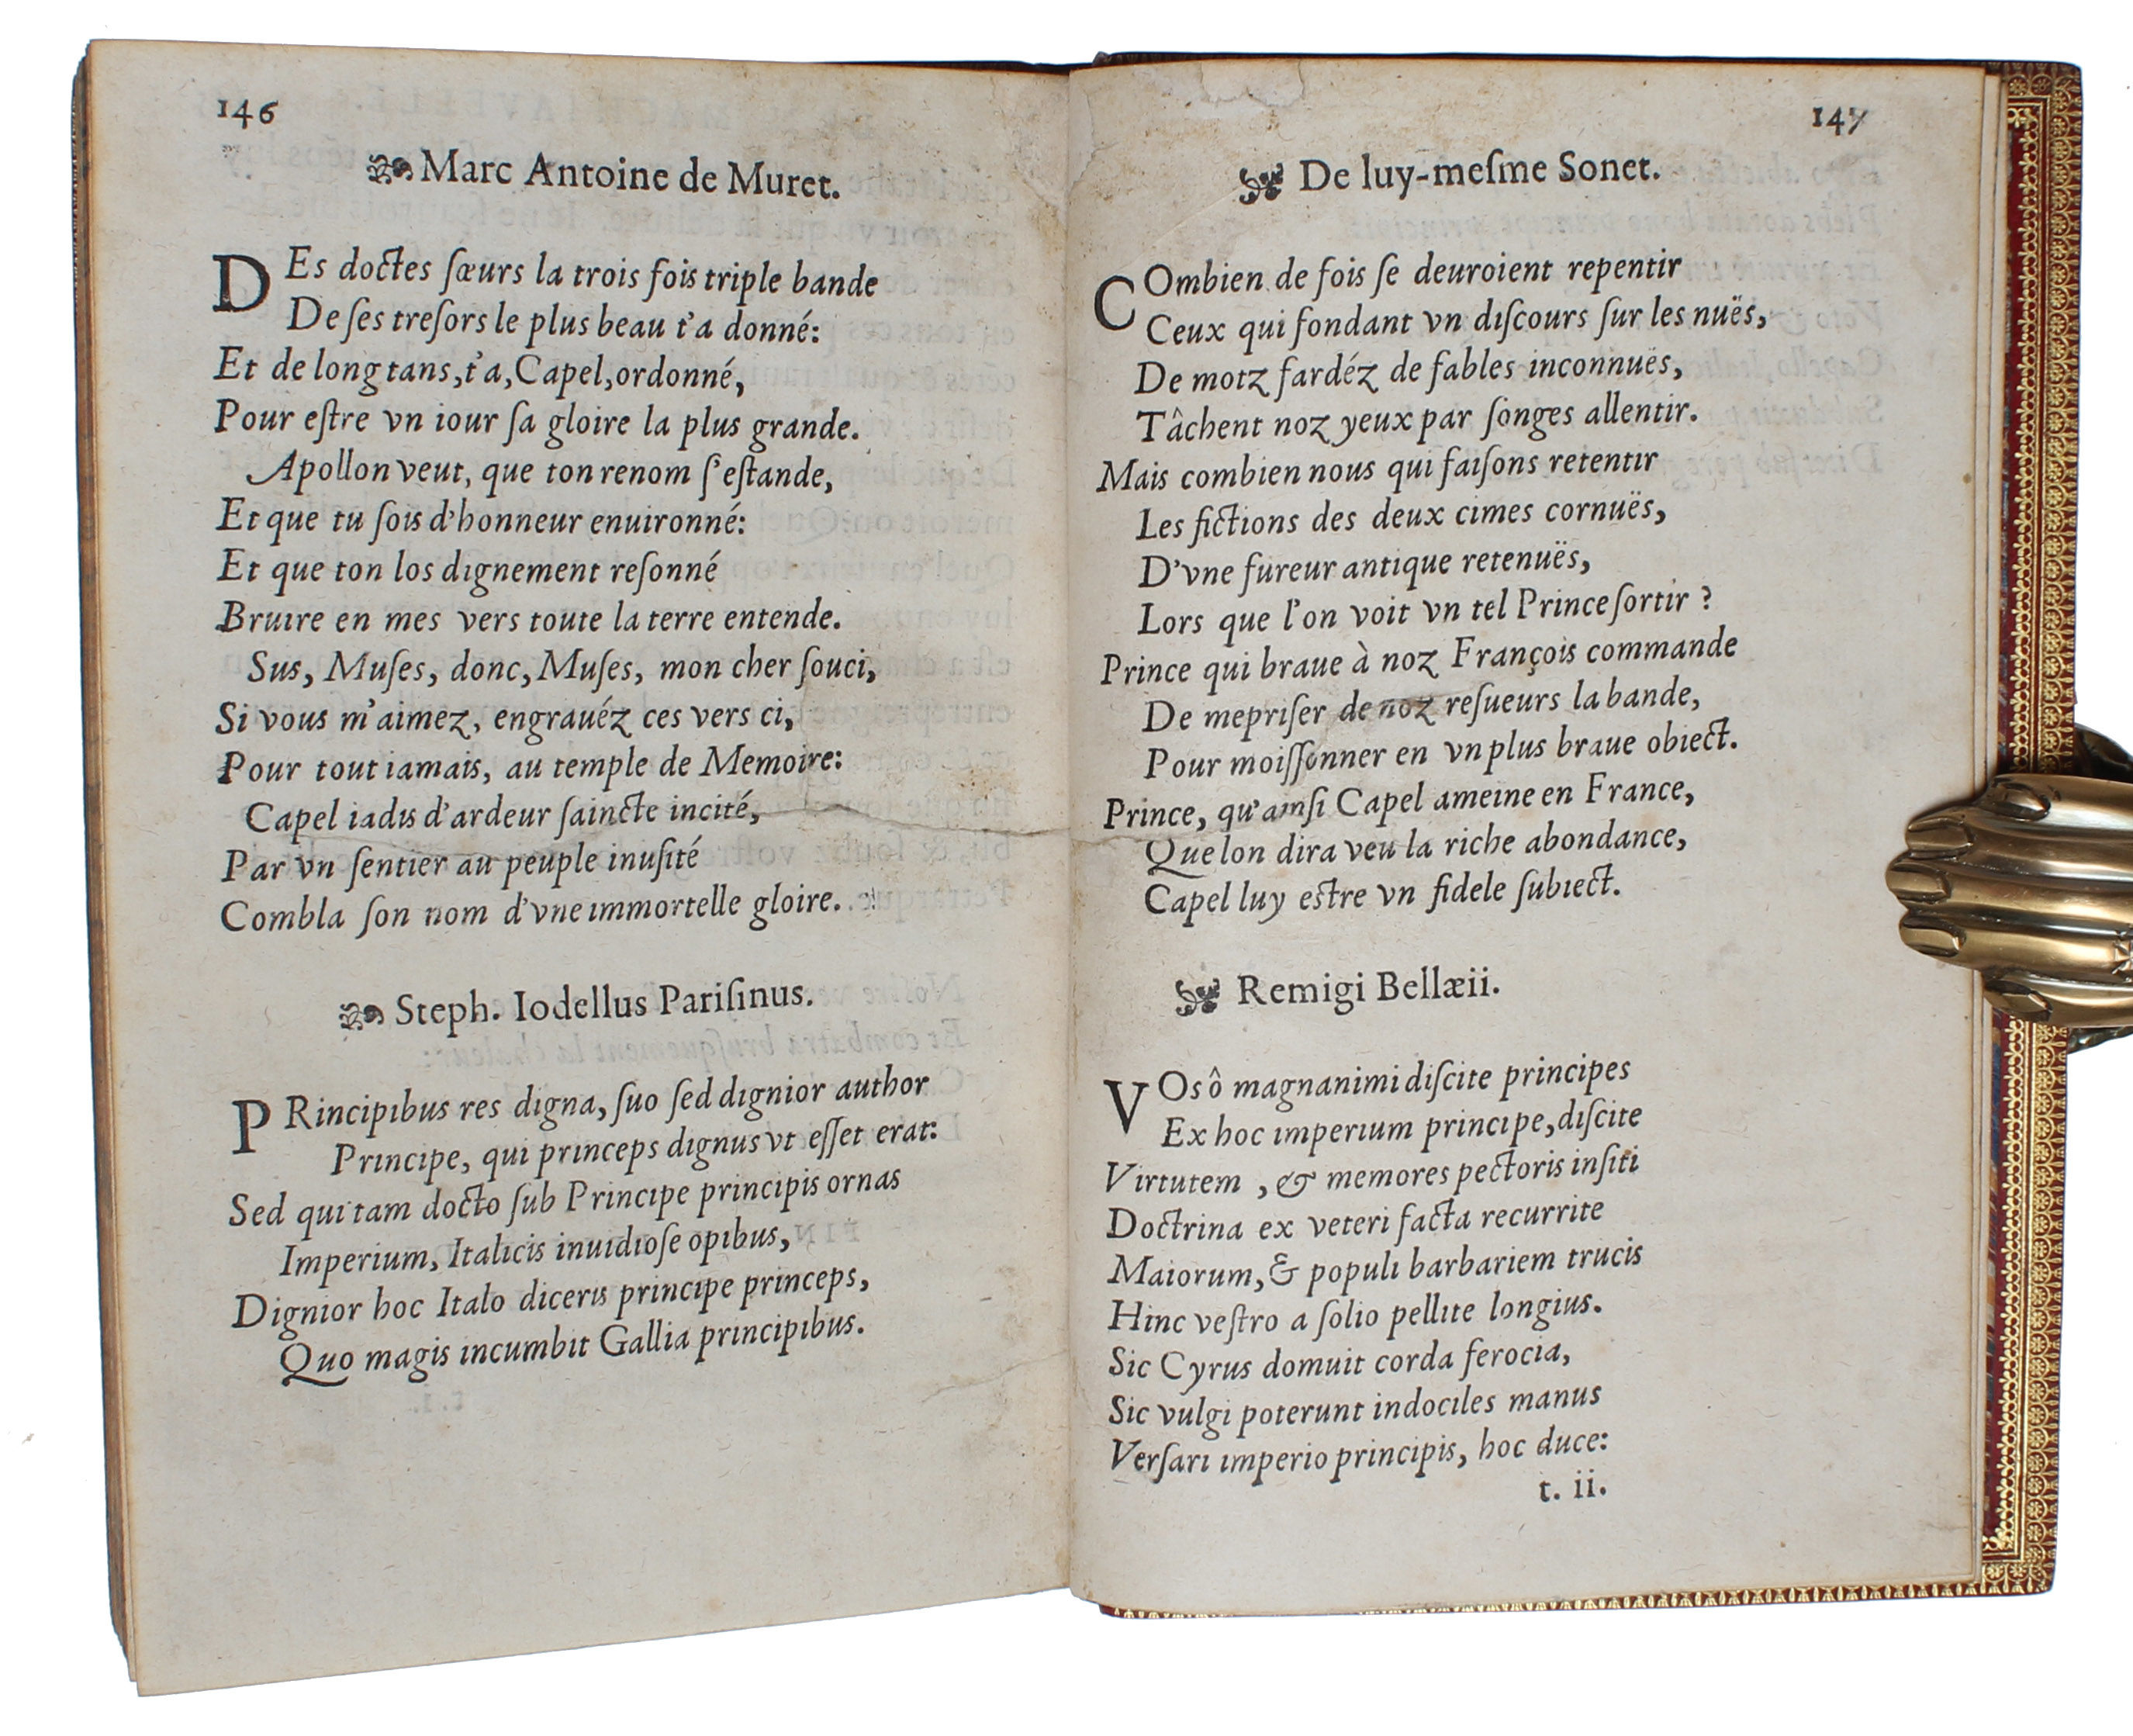 146
Marc Antoine de Muret.
DEs doctes ſœurs la trois fois triple bande
De ſes treſors le plus beau t'a donné:
Et de long tans, t'a, Capel, ordonné,
Pour eſtre vn iour ſa gloire la plus grande.
Apollon veut, que ton renom ſ'eſtande,
Et que tu ſois d'honneur enuironné:
Et que ton los dignement reſonné
Bruire en mes vers toute la terre entende.
Sus, Muſes, donc, Muſes, mon cher ſouci,
Si vous m'aimez, engrauéz ces vers ci,
Pour tout iamais, au temple de Memoire:
Capel iadis d'ardeur ſaincte incité,
Par vn ſentier au peuple inuſité
Combla ſon nom d'vne immortelle gloire.
Steph. Iodellus Pariſinus.
PRincipibus res digna, ſuo ſed dignior author
Principe, qui princeps dignus vt eſſet erat:
Sed qui tam docto ſub Principe principis ornas
Imperium, Italicis inuidioſe opibus,
Dignior hoc Italo diceris principe princeps,
Quo magis incumbit Gallia principibus.
147
De luy-meſme Sonet.
COmbien de fois ſe deuroient repentir
Ceux qui fondant vn diſcours ſur les nuës,
De motz fardéz de fables inconnuës,
Tâchent noz yeux par ſonges allentir.
Mais combien nous qui faiſons retentir
Les fictions des deux cimes cornuës,
D'vne fureur antique retenuës,
Lors que l'on voit vn tel Prince ſortir ?
Prince qui braue à noz François commande
De mepriſer de noz reſueurs la bande,
Pour moiſſonner en vn plus braue obiect.
Prince, qu'ainſi Capel ameine en France,
Que lon dira veu la riche abondance,
Capel luy eſtre vn fidele ſubiect.
Remigi Bellæii.
VOs ô magnanimi diſcite principes
Ex hoc imperium principe, diſcite
Virtutem , & memores pectoris inſiti
Doctrina ex veteri facta recurrite
Maiorum, & populi barbariem trucis
Hinc veſtro a ſolio pellite longius.
Sic Cyrus domuit corda ferocia,
Sic vulgi poterunt indociles manus
Verſari imperio principis, hoc duce:
t. ii.